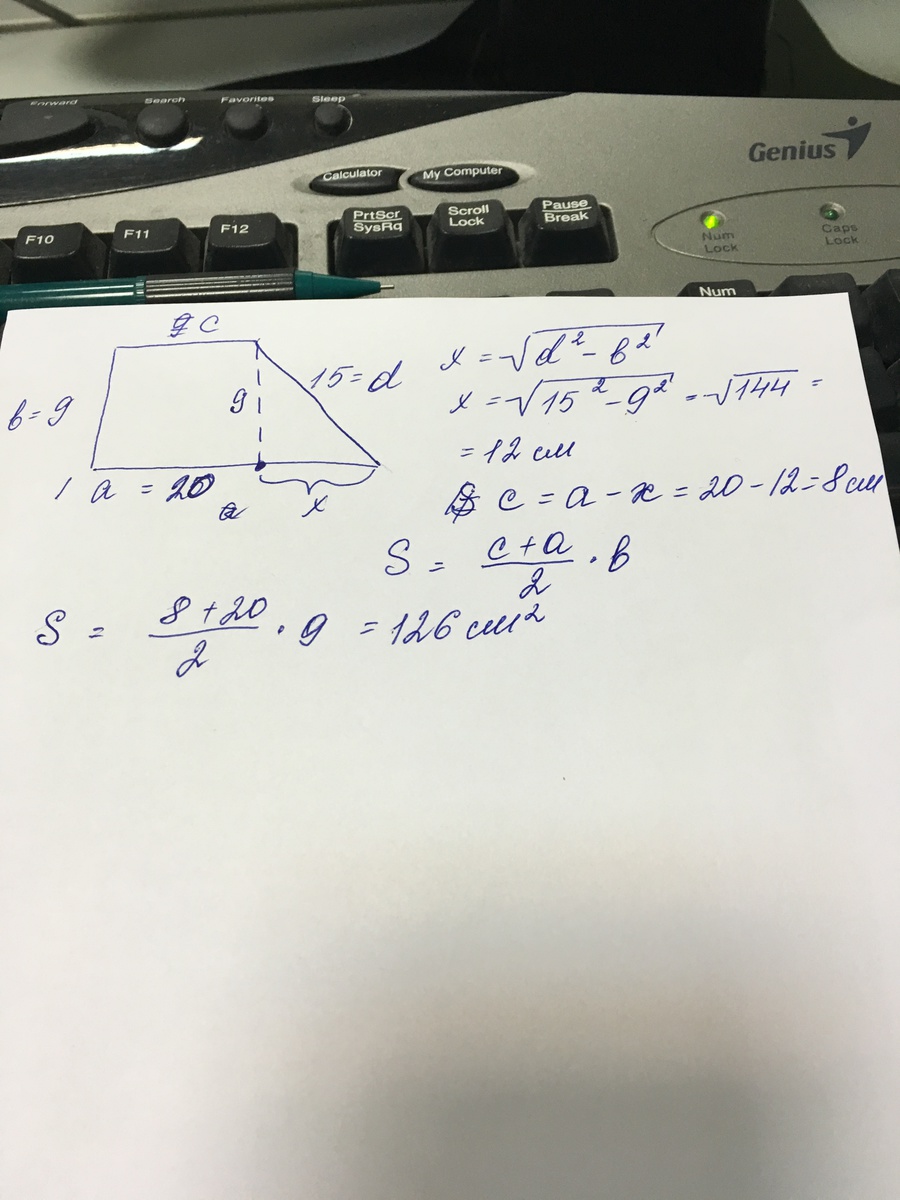 Forward
Search
Favorites
Sleep
Genius
Calculator
My Computer
F10
F11
F12
PrtScr
SysRq
Scroll
Lock
Pause
Break
Num
Lock
Caps
Lock
Num
c
b = 9
9
15 = d
a = 20
a
x
x = √(d² - b²)
x = √(15² - 9²) = √144 =
= 12 см
c = a - x = 20 - 12 = 8 см
S = (c + a)/2 · b
S = (8 + 20)/2 · 9 = 126 см²